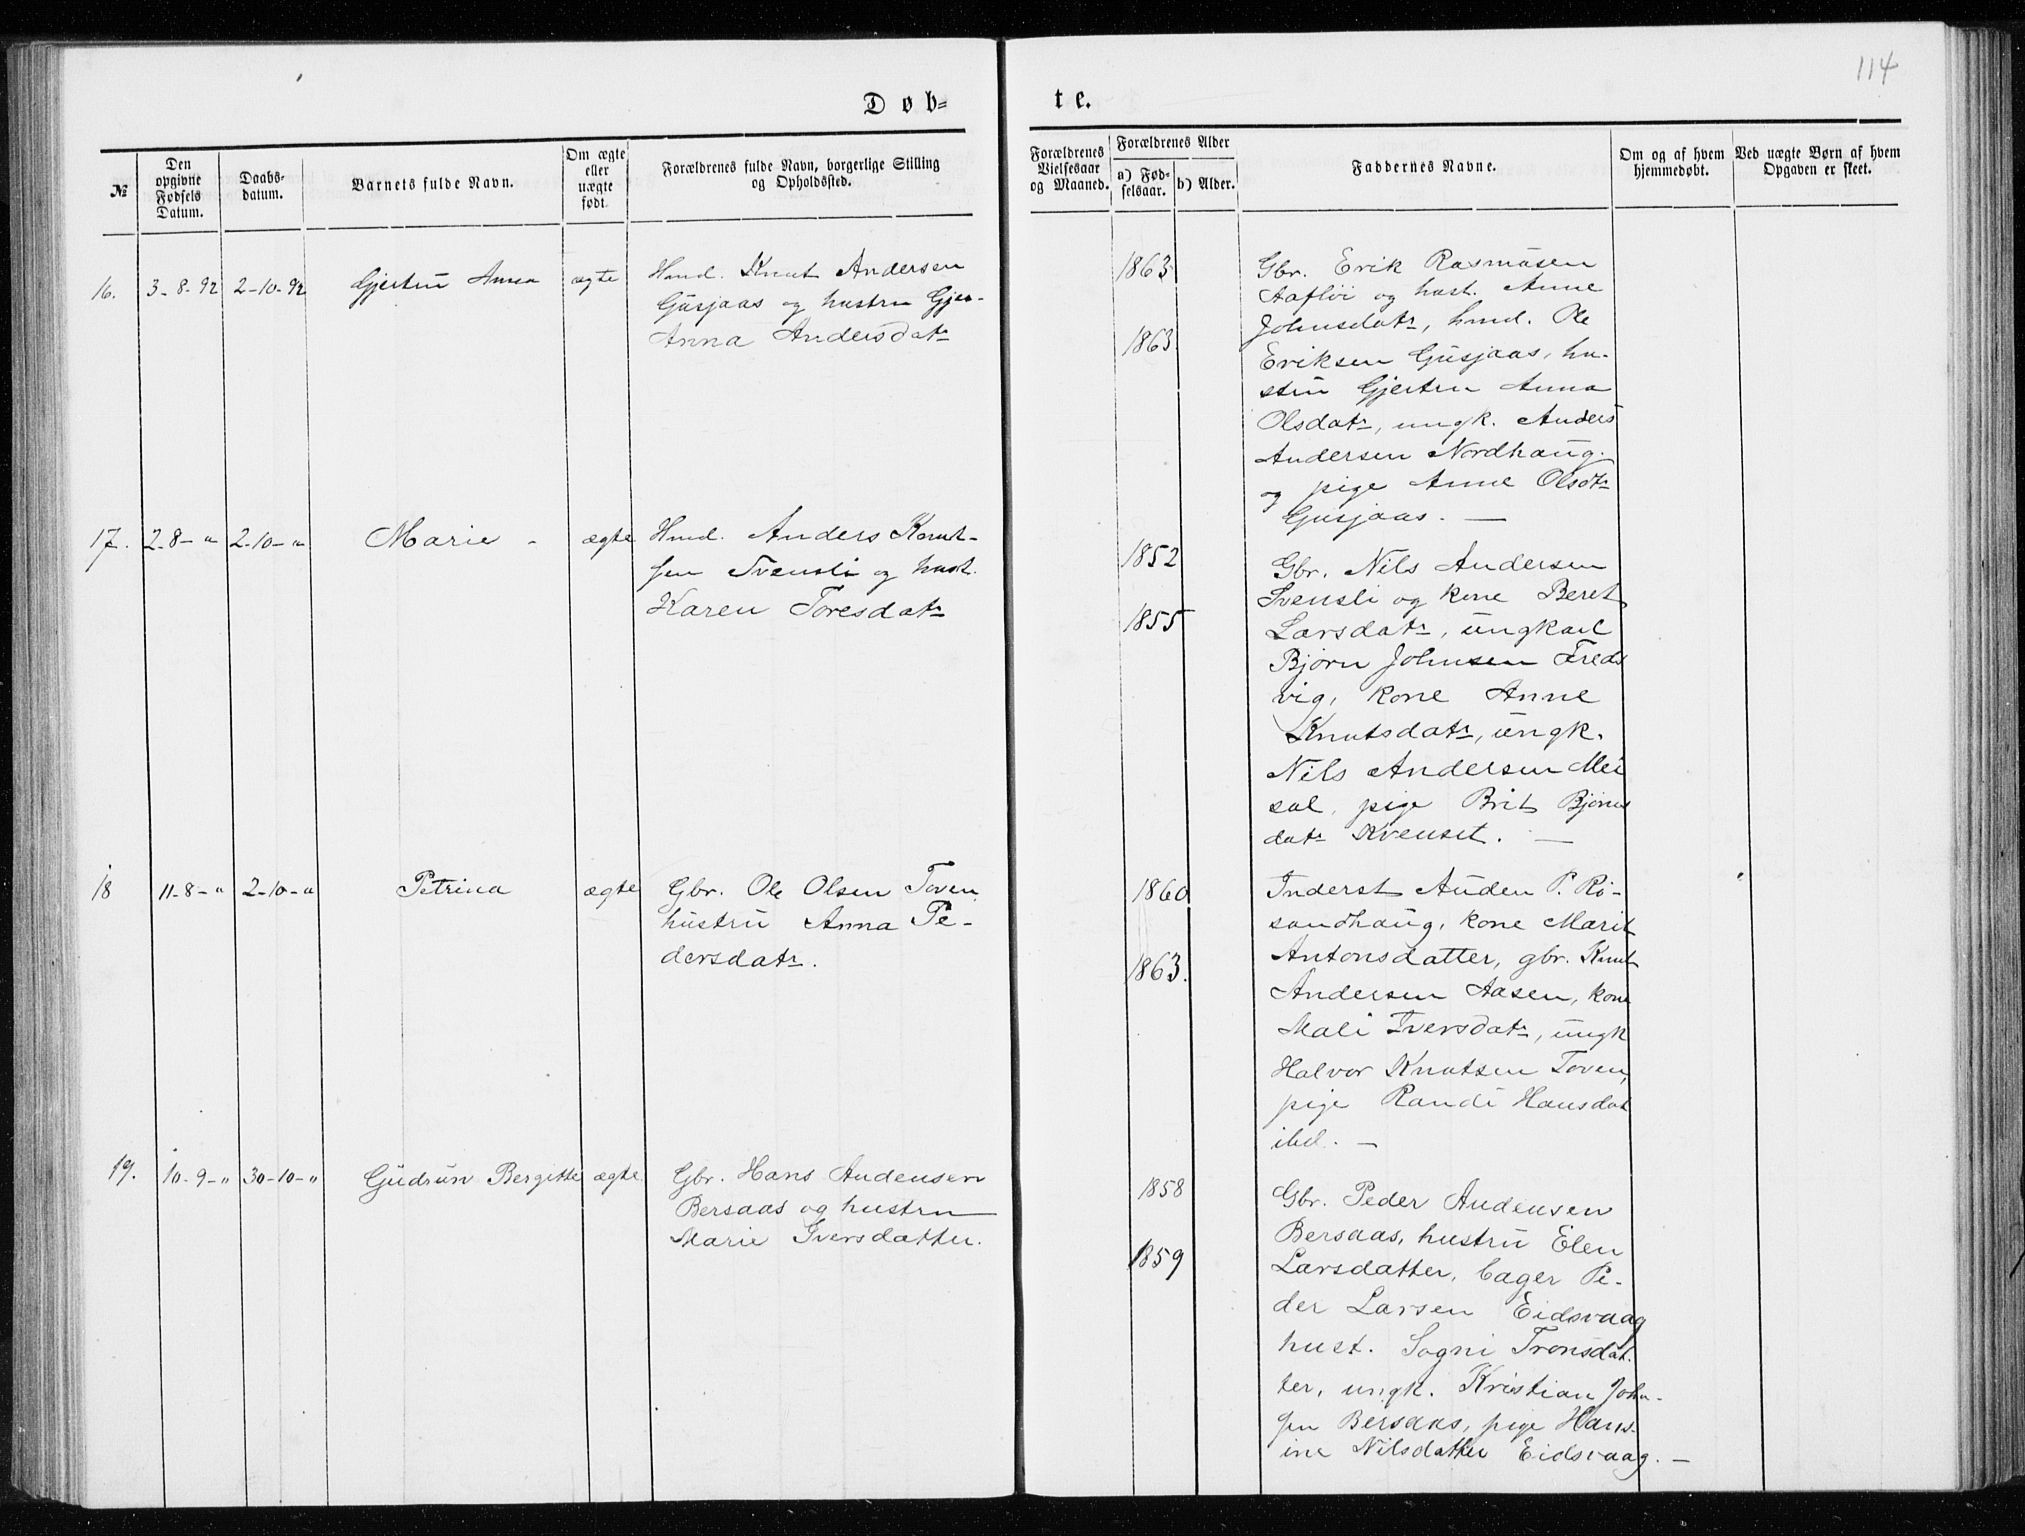 114
Døb=
te.
№
Den
opgivne
Fødsels
Datum.
Daabs-
datum.
Barnets fulde Navn.
Om ægte
eller
uægte
født.
Forældrenes fulde Navn, borgerlige Stilling
og Opholdssted.
Forældrenes
Vielsesaar
og Maaned.
Forældrenes Alder
a) Fød-
selsaar.
b) Alder.
Faddernes Navne.
Om og af hvem
hjemmedøbt.
Ved uægte Børn af hvem
Opgaven er skeet.
16.
3-8-92
2-10-92
Gjertru Anna
ægte
Hmd. Knut Andersen
Gusjaas og hustru
Anna Andersdatr
1863
1863
Gbr. Erik Rasmusen
Aafløi og hust. Anne
Johnsdatr, hmd. Ole
Eriksen Gusjaas, hu-
stru Gjertru Anna
Olsdatr, ungk. Anders
Andersen Nordhaug
og pige Anne Olsdtr
Gusjaas. —
17.
2-8-"
2-10-"
Marie -
ægte
Hmd. Anders Knut-
sen Svensli og hust.
Karen Toresdatr
1852
1855
Gbr. Nils Andersen
Svensli og kone Beret
Larsdatr, ungkarl
Bjørn Johnsen Freds
vig, kone Anne
Knutsdatr, ungk.
Nils Andersen Mei
sal, pige Brit Bjørns
datr Kvenset. —
18
11-8-"
2-10-"
Petrina
ægte
Gbr. Ole Olsen Toven
hustru Anna Pe-
dersdatr.
1860
1863.
Inderst Auden P. Rø-
sandhaug, kone Marit
Antonsdatter, gbr. Knut
Andersen Aasen, kone
Mali Iversdatr, ungk
Halvor Knutsen Toven,
pige Randi Hansdat
ibd. —
19.
10-9-"
30-10-"
Gudrun Bergitte
ægte
Gbr. Hans Audensen
Bersaas og hustru
Marie Iversdatter.
1858
1859
Gbr. Peder Audensen
Bersaas, hustru Elen
Larsdatter, bager Pe-
der Larsen Eidsvaag
hust. Sogni Tronsdat-
ter, ungk. Kristian John-
sen Bersaas, pige Hans-
ine Nilsdatter Eidsvaag. —